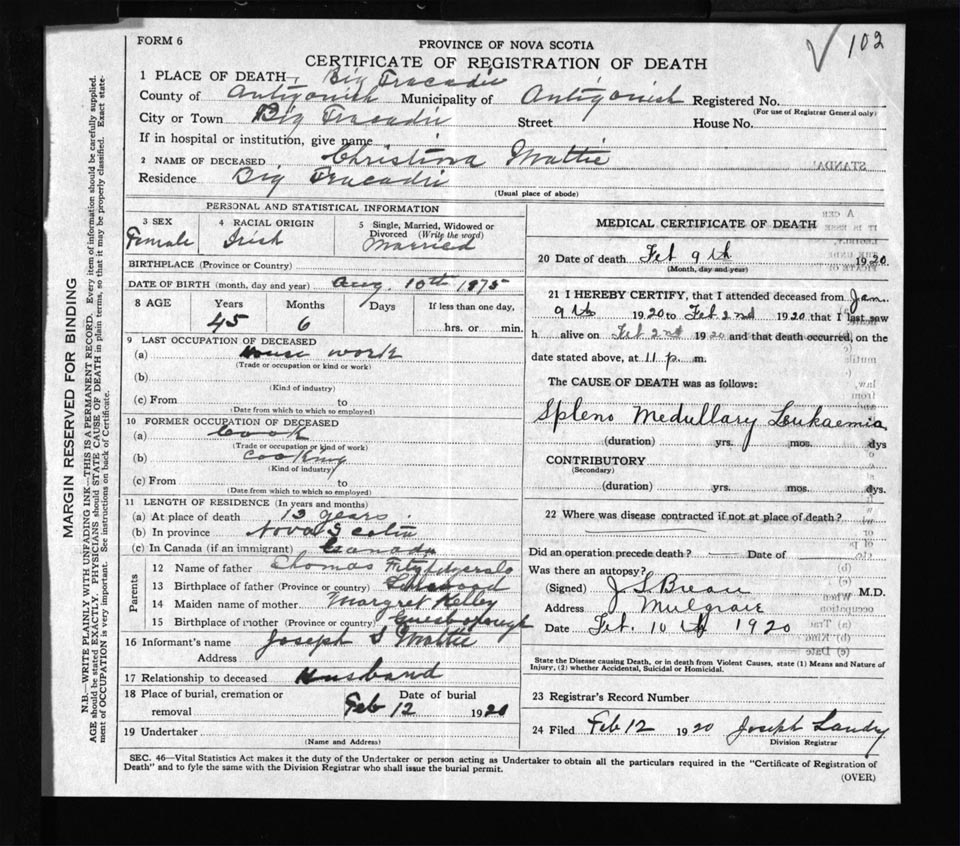 FORM 6
PROVINCE OF NOVA SCOTIA
102
CERTIFICATE OF REGISTRATION OF DEATH
1 PLACE OF DEATH Big Tracadie
County of Antigonish Municipality of Antigonish Registered No.
(For use of Registrar General only)
City or Town Big Tracadie Street House No.
If in hospital or institution, give name
2 NAME OF DECEASED Christina Mattie
Residence Big Tracadie
(Usual place of abode)
PERSONAL AND STATISTICAL INFORMATION
3 SEX Female
4 RACIAL ORIGIN Irish
5 Single, Married, Widowed or Divorced (Write the word) Married
BIRTHPLACE (Province or Country)
DATE OF BIRTH (month, day and year) Aug. 10th 1875
8 AGE Years Months Days If less than one day,
45 6 hrs. or min.
9 LAST OCCUPATION OF DECEASED
(a) House work
(Trade or occupation or kind or work)
(b)
(Kind of industry)
(c) From to
(Date from which to which so employed)
10 FORMER OCCUPATION OF DECEASED
(a) Cook
(Trade or occupation or kind of work)
(b) Cooking
(Kind of industry)
(c) From to
(Date from which to which so employed)
11 LENGTH OF RESIDENCE (In years and months)
(a) At place of death 13 years
(b) In province Nova Scotia
(c) In Canada (if an immigrant) Canada
Parents
12 Name of father Thomas Fitzgerald
13 Birthplace of father (Province or country)
14 Maiden name of mother Margret Kelley
15 Birthplace of mother (Province or country) Guesborough
16 Informant's name Joseph S Mattie
Address
17 Relationship to deceased Husband
18 Place of burial, cremation or removal Date of burial
Feb 12 1920
19 Undertaker
(Name and Address)
MEDICAL CERTIFICATE OF DEATH
20 Date of death Feb 9th 1920
(Month, day and year)
21 I HEREBY CERTIFY, that I attended deceased from Jan.
9th 1920 to Feb 2nd 1920 that I last saw
h alive on Feb 2nd 1920 and that death occurred, on the
date stated above, at 11 p. m.
The CAUSE OF DEATH was as follows:
Spleno Medullary Leukaemia
(duration) yrs. mos. dys
CONTRIBUTORY
(Secondary)
(duration) yrs. mos. dys.
22 Where was disease contracted if not at place of death?
Did an operation precede death? Date of
Was there an autopsy?
(Signed) J S Brean M.D.
Address Mulgrave
Date Feb. 10th 1920
State the Disease causing Death, or in death from Violent Causes, state (1) Means and Nature of
Injury, (2) whether Accidental, Suicidal or Homicidal.
23 Registrar's Record Number
24 Filed Feb 12 1920 Joseph Landry
Division Registrar
SEC. 46—Vital Statistics Act makes it the duty of the Undertaker or person acting as Undertaker to obtain all the particulars required in the "Certificate of Registration of
Death" and to fyle the same with the Division Registrar who shall issue the burial permit.
(OVER)
MARGIN RESERVED FOR BINDING
N.B.—WRITE PLAINLY WITH UNFADING INK—THIS IS A PERMANENT RECORD. Every item of information should be carefully supplied.
AGE should be stated EXACTLY. PHYSICIANS should STATE CAUSE OF DEATH in plain terms, so that it may be properly classified. Exact statement of OCCUPATION is very important. See instructions on back of Certificate.